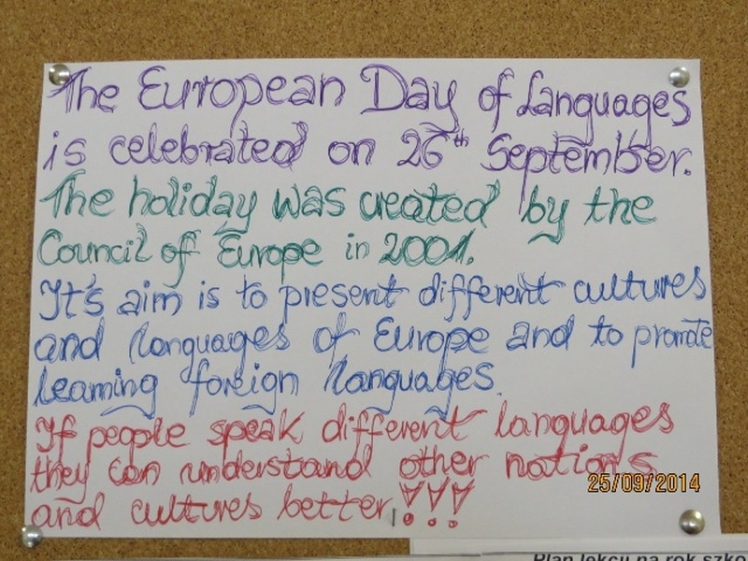 The European Day of Languages
is celebrated on 26th September.
The holiday was created by the
Council of Europe in 2001.
It's aim is to present different cultures
and languages of Europe and to promote
learning foreign languages.
If people speak different languages
they can understand other nations
and cultures better!!!
25/09/2014
Plan lekcji na rok szko